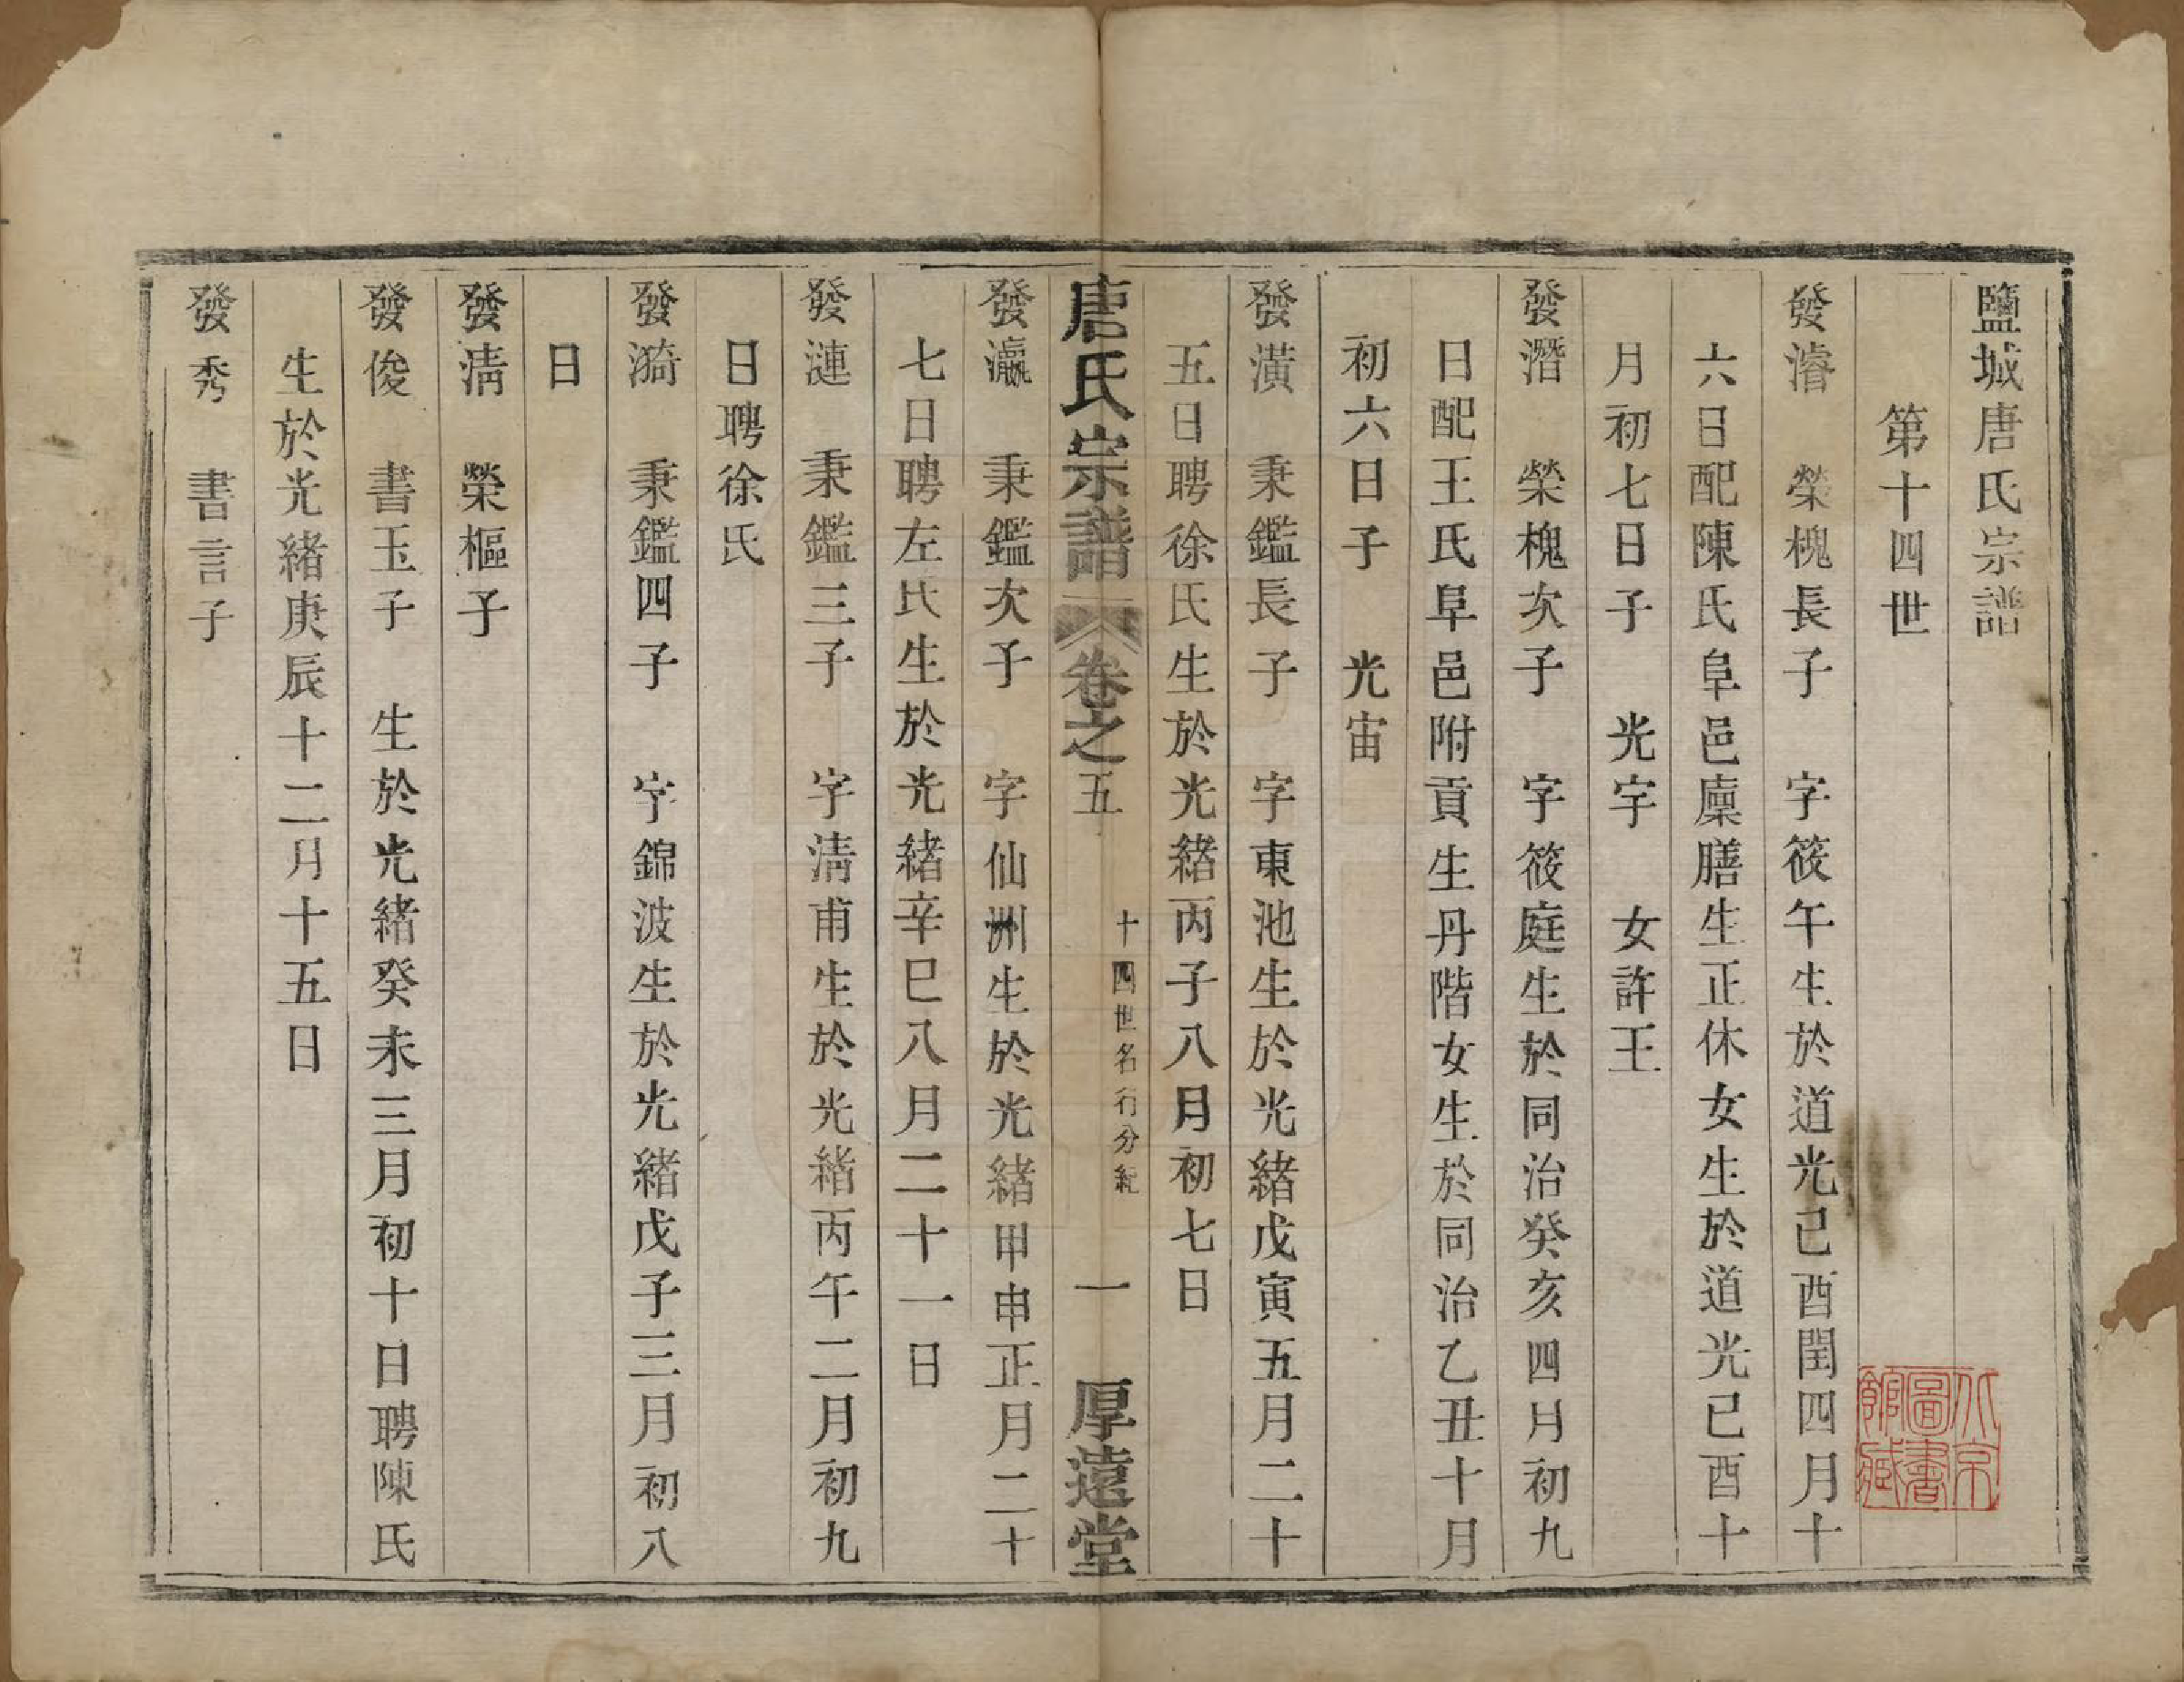 鹽城唐氏宗譜
第十四世
發濬　榮槐長子　字筱午生於道光己酉閏四月十
六日配陳氏阜邑廩膳生正休女生於道光己酉十
月初七日子　光宇　女許王
發潛　榮槐次子　字筱庭生於同治癸亥四月初九
日配王氏阜邑附貢生丹階女生於同治乙丑十月
初六日子　光宙
發潢　秉鑑長子　字東池生於光緒戊寅五月二十
五日聘徐氏生於光緒丙子八月初七日
唐氏宗譜　卷之五　十四世名行分紀　一　厚遠堂
發瀛　秉鑑次子　字仙洲生於光緒甲申正月二十
七日聘左氏生於光緒辛巳八月二十一日
發漣　秉鑑三子　字清甫生於光緒丙午二月初九
日聘徐氏
發漪　秉鑑四子　字錦波生於光緒戊子三月初八
日
發清　榮樞子
發俊　書玉子　生於光緒癸未三月初十日聘陳氏
生於光緒庚辰十二月十五日
發秀　書言子
北京圖書館藏